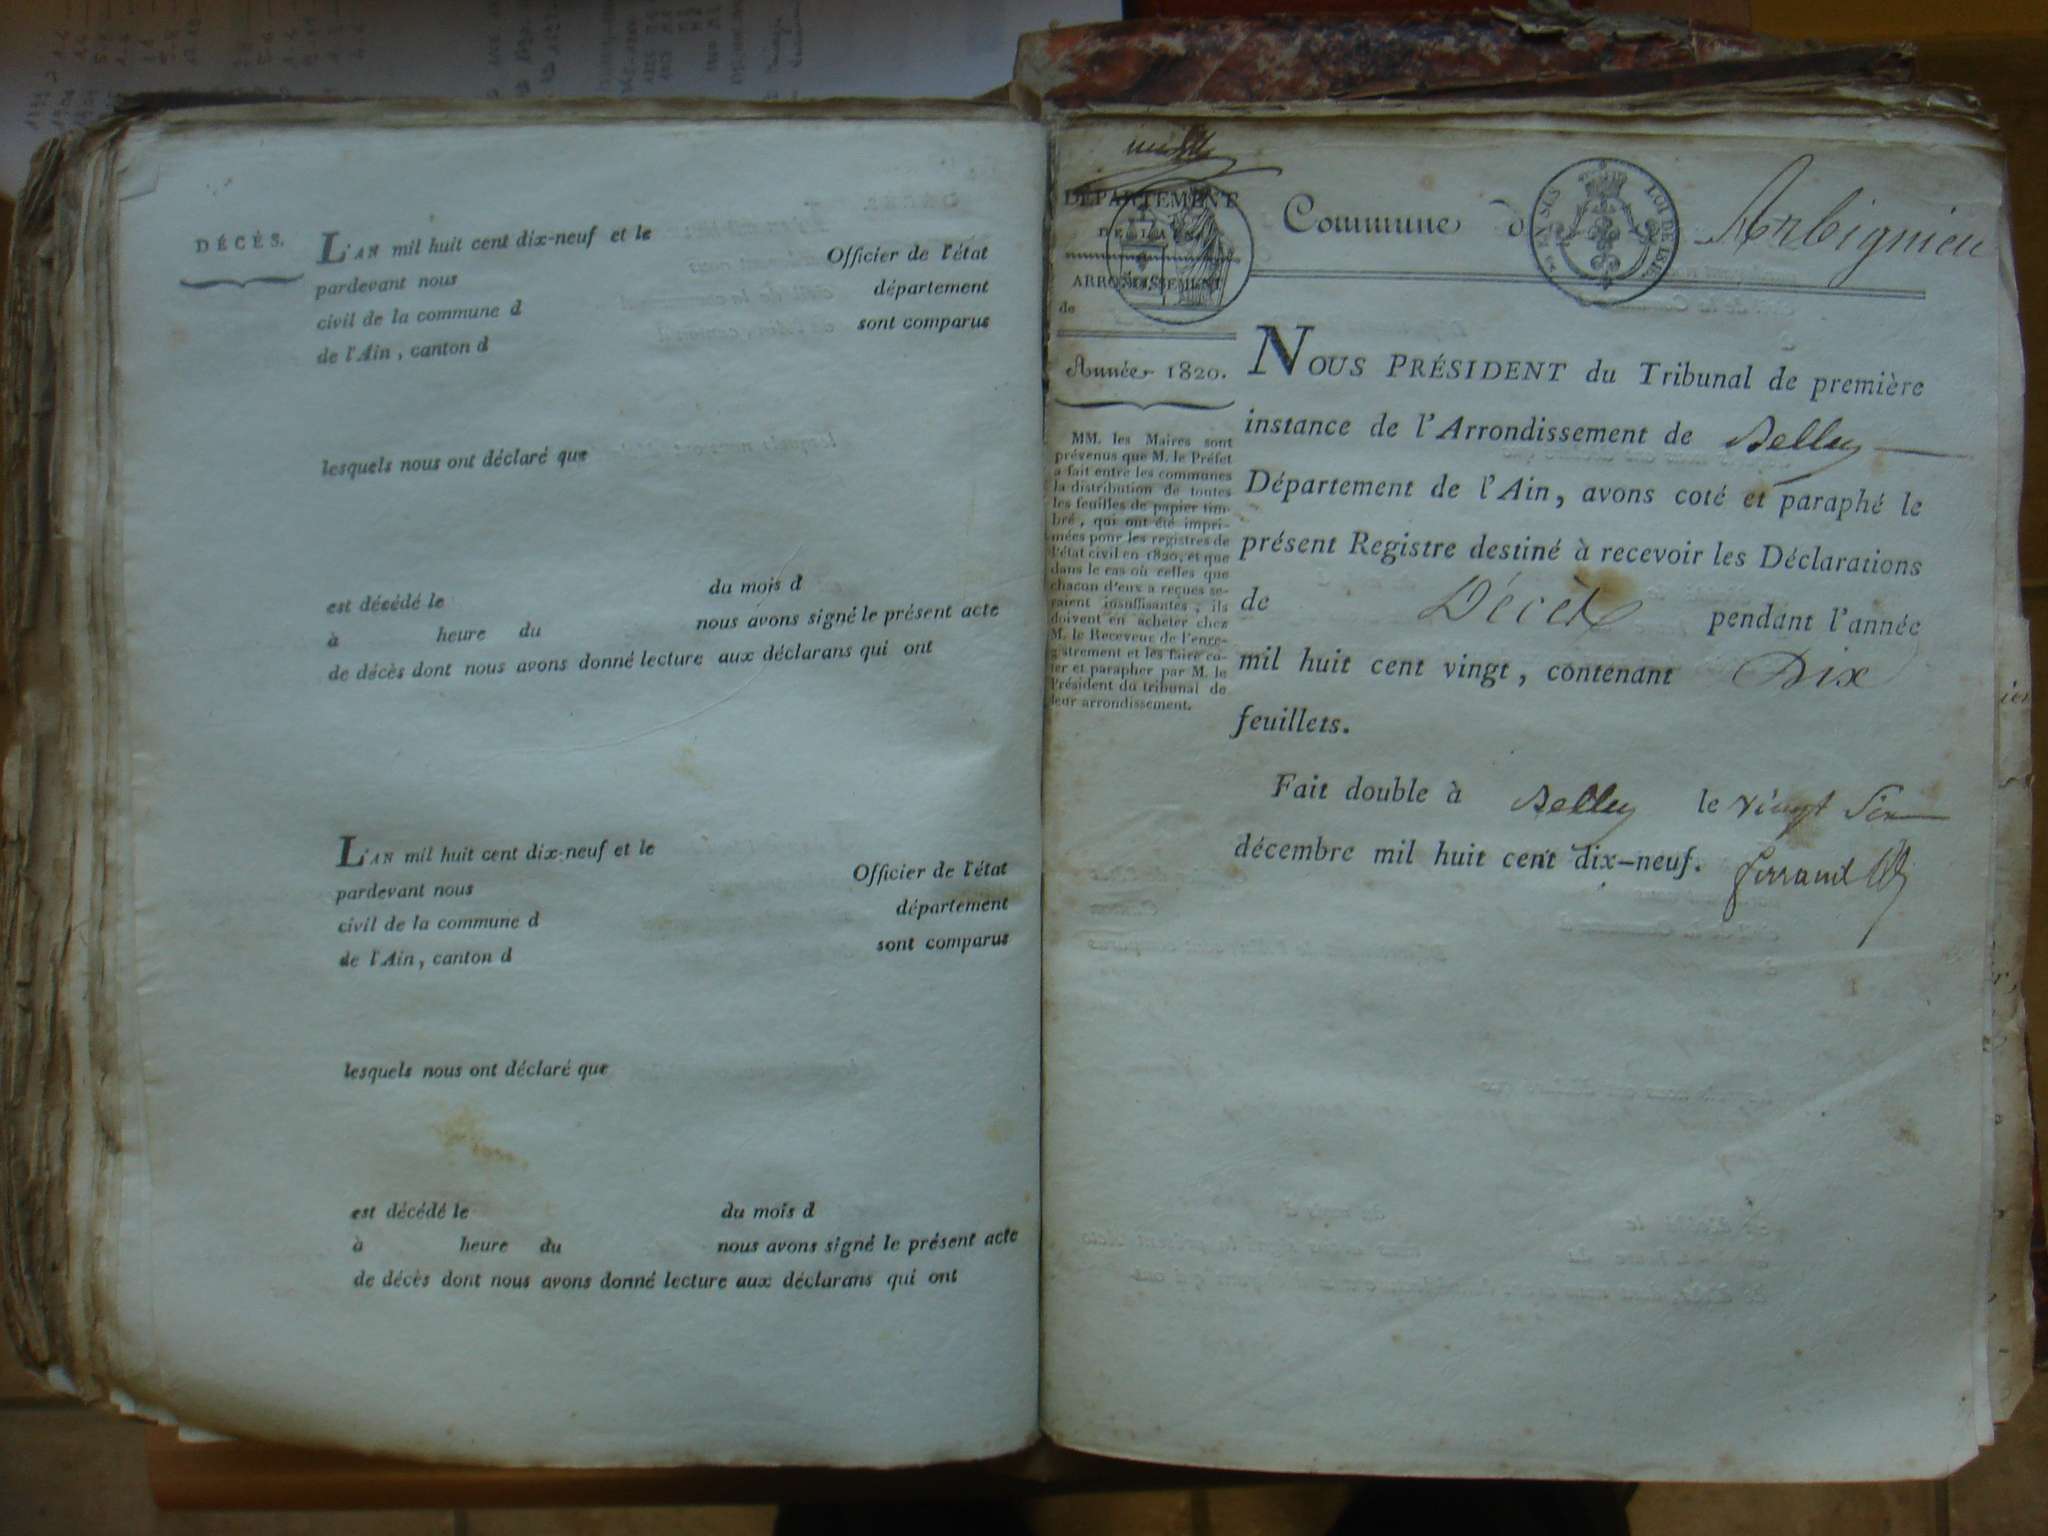 DÉCÈS.
L'AN mil huit cent dix-neuf et le
pardevant nous Officier de l'état
civil de la commune d département
de l'Ain, canton d sont comparus
lesquels nous ont déclaré que
est décédé le du mois d
à heure du nous avons signé le présent acte
de décès dont nous avons donné lecture aux déclarans qui ont
L'AN mil huit cent dix-neuf et le
pardevant nous Officier de l'état
civil de la commune d département
de l'Ain, canton d sont comparus
lesquels nous ont déclaré que
est décédé le du mois d
à heure du nous avons signé le présent acte
de décès dont nous avons donné lecture aux déclarans qui ont
DÉPARTEMENT
DE L'AIN
ARRONDISSEMENT
de
Année 1820.
MM. les Maires sont
prévenus que M. le Préfet
a fait entre les communes
la distribution de toutes
les feuilles de papier tim-
bré, qui ont été impri-
mées pour les registres de
l'état civil en 1820, et que
dans le cas où celles que
chacun d'eux a reçues se-
raient insuffisantes, ils
doivent en acheter chez
M. le Receveur de l'enre-
gistrement et les faire co-
ter et parapher par M. le
Président du tribunal de
leur arrondissement.
Commune d Arbignieu
NOUS PRÉSIDENT du Tribunal de première
instance de l'Arrondissement de Belley
Département de l'Ain, avons coté et paraphé le
présent Registre destiné à recevoir les Déclarations
de Décès pendant l'année
mil huit cent vingt, contenant Dix
feuillets.
Fait double à Belley le vingt Six
décembre mil huit cent dix-neuf. ferrand